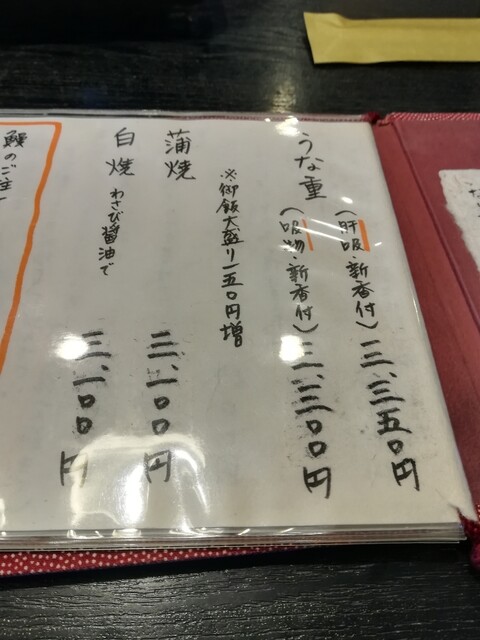 うな重
(肝吸・新香付) 三、三五〇円
(吸物・新香付) 三、三〇〇円
※御飯大盛り一五〇円増
蒲焼 三、一〇〇円
白焼 わさび醤油で 三、一〇〇円
鰻のご注